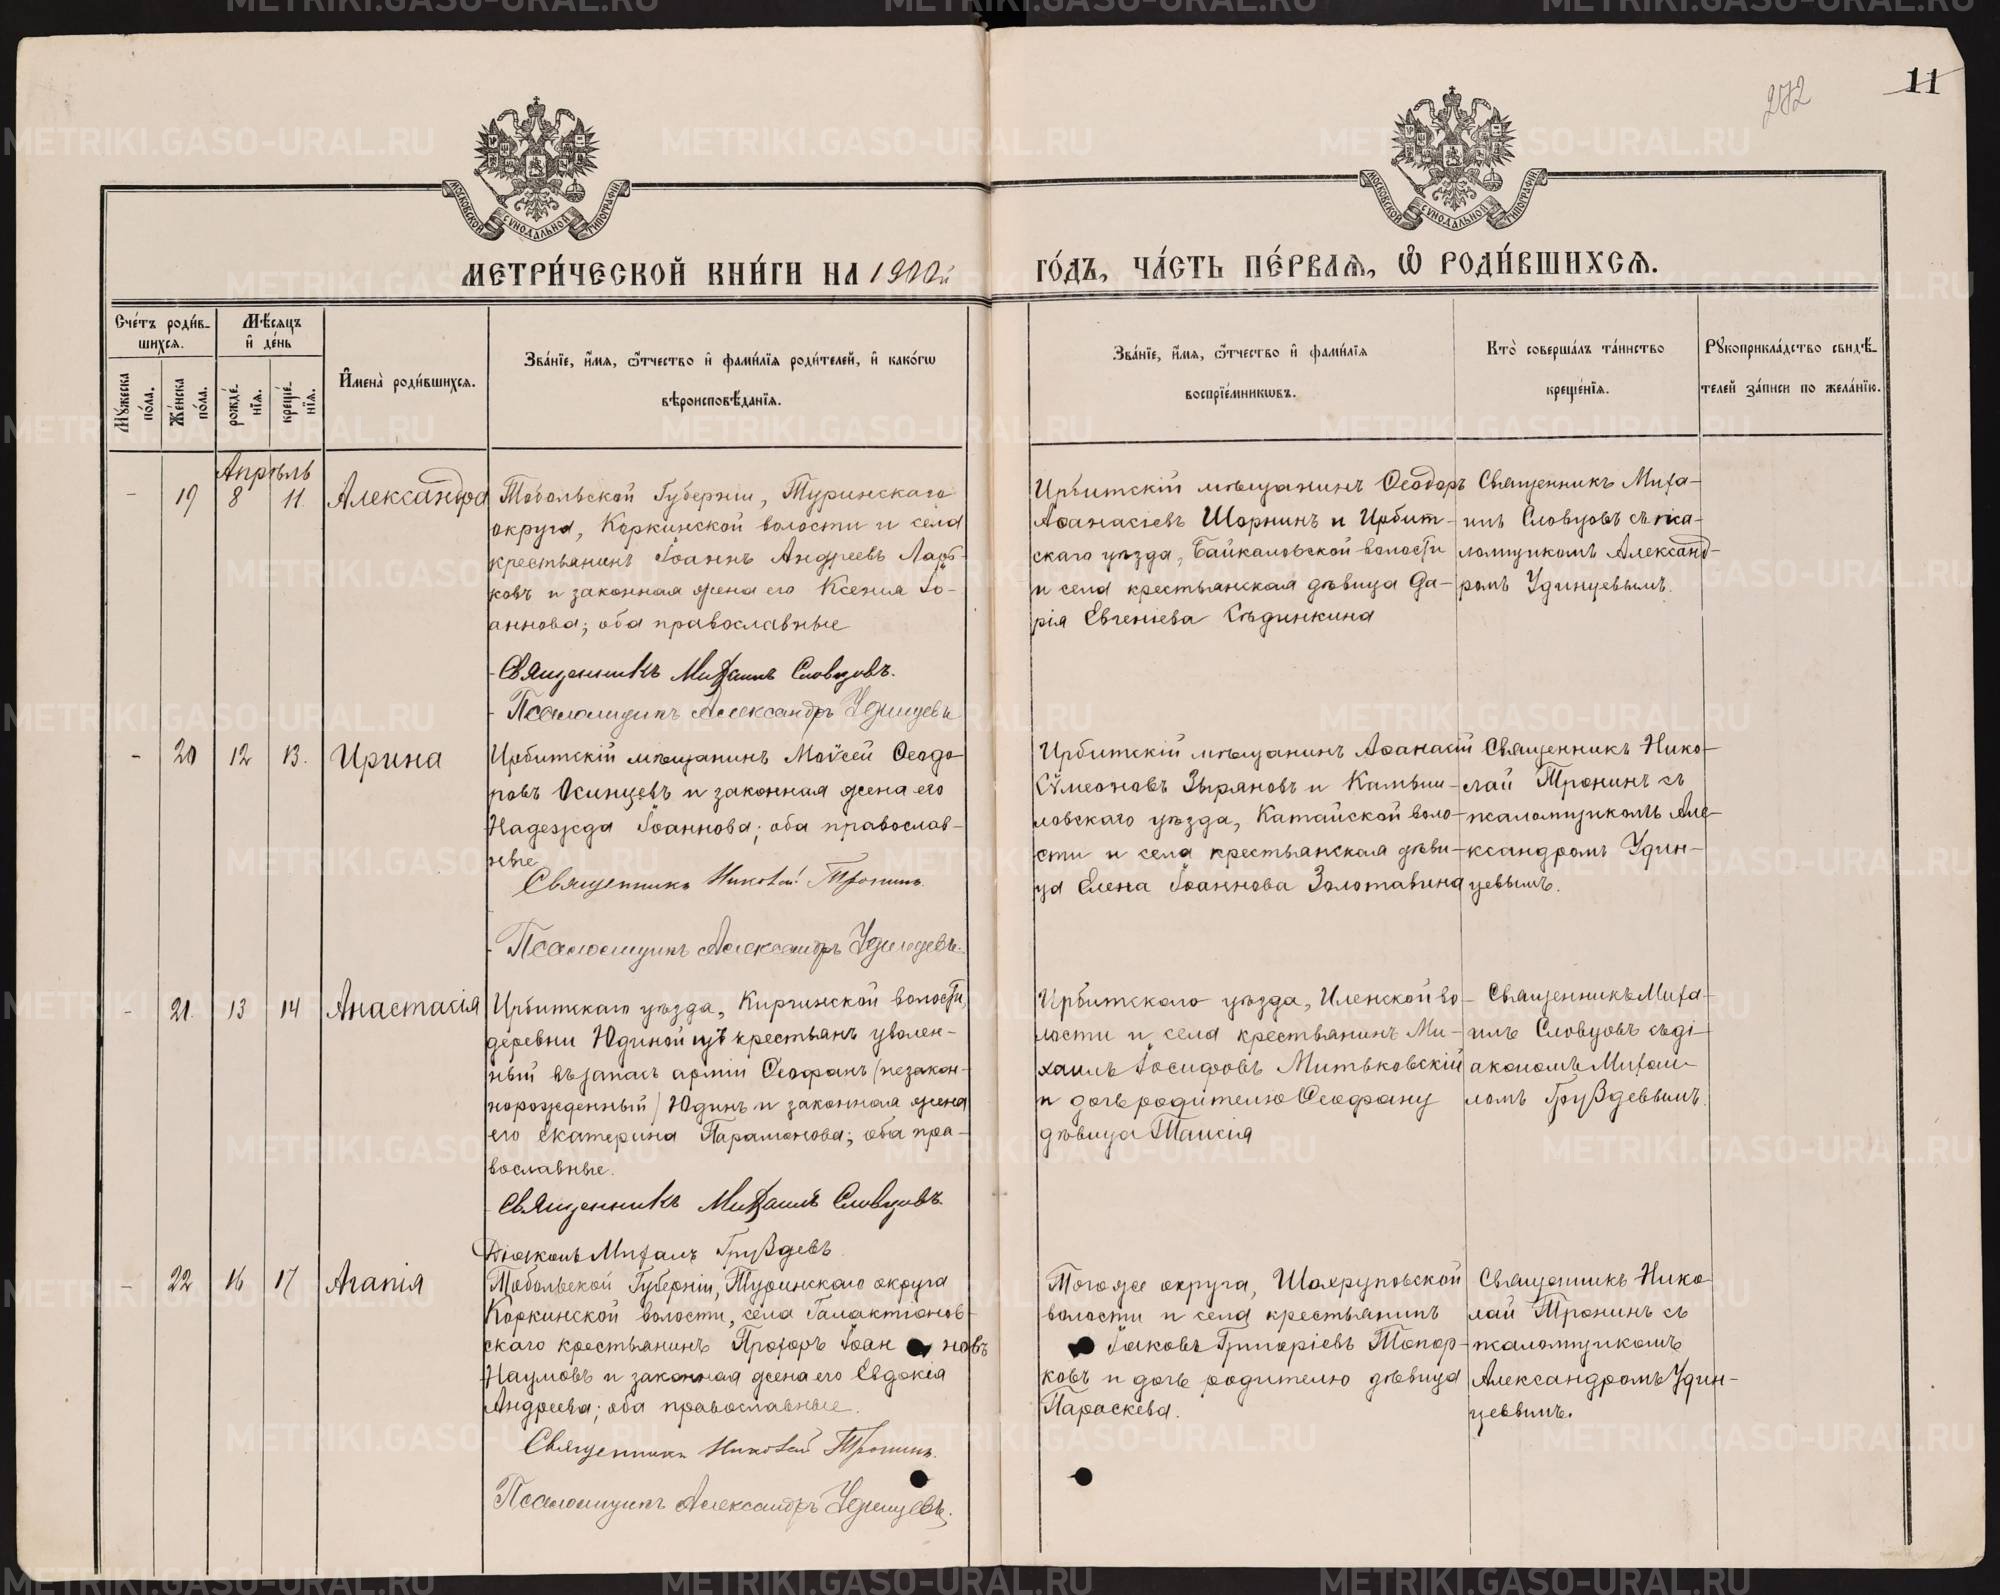 272
11
МОСКОВСКОЙ СѴНОДАЛЬНОЙ ТИПОГРАФІИ
МОСКОВСКОЙ СѴНОДАЛЬНОЙ ТИПОГРАФІИ
МЕТРИ́ЧЕСКОЙ КНИ́ГИ НА 1900й ГО́ДЪ, ЧА́СТЬ ПЕ́РВАѦ, Ѡ РОДИ́ВШИХСѦ.
Сче́тъ роди́в-
шихсѧ.
Мꙋжеска по́ла.
Же́нска по́ла.
Мѣ́сѧцъ и҆ де́нь
рожде́-
нїѧ.
креще́-
нїѧ.
И҆мена̀ роди́вшихсѧ.
Зва́нїе, и҆́мѧ, ѻ҆́тчество и҆ фами́лїѧ роди́телей, и҆ како́гѡ
вѣроисповѣ́данїѧ.
Зва́нїе, и҆́мѧ, ѻ҆́тчество и҆ фами́лїѧ
воспрїе́мникѡвъ.
Кто̀ соверша́лъ та́инство
креще́нїѧ.
Рꙋкоприкла́дство свидѣ́-
телей за́писи по жела́нїю.
Апрѣль
- 19 8 11 Александра
Тобольской Губерніи, Туринскаго
округа, Коркинской волости и села
крестьянинъ Іоаннъ Андреевъ
ковъ и законная жена его Ксенія Іо-
аннова; оба православные
Священникъ Михаилъ Словцовъ.
Псаломщикъ Александръ Удинцевъ
Ирбитскій мѣщанинъ Ѳеодоръ
Аѳанасіевъ Шорнинъ и Ирбит-
скаго уѣзда, Байкаловской волости
и села крестьянская дѣвица Да-
рія Евгеніева Сѣдинкина
Священникъ Миха-
илъ Словцовъ съ пса-
ломщикомъ Александ-
ромъ Удинцевымъ.
- 20 12 13. Ирина
Ирбитскій мѣщанинъ Моѵсей Ѳеодо-
ровъ Осинцевъ и законная жена его
Надежда Іоаннова; оба православ-
ные
Священникъ Николай Тронинъ.
Псаломщикъ Александръ Удинцевъ.
Ирбитскій мѣщанинъ Аѳанасій
Сѵмеоновъ Зыряновъ и Камыш-
ловскаго уѣзда, Катайской воло-
сти и села крестьянская дѣви-
ца Елена Іоаннова Золотавина
Священникъ Нико-
лай Тронинъ съ
псаломщикомъ Але-
ксандромъ Удин-
цевымъ.
- 21. 13 14 Анастасія
Ирбитскаго уѣзда, Киргинской волости,
деревни Юдиной изъ крестьянъ уволен-
ный въ запасъ арміи Ѳеофанъ (незакон-
норожденный) Юдинъ и законная жена
его Екатерина Парамонова; оба пра-
вославные.
Священникъ Михаилъ Словцовъ.
Діаконъ Михаилъ Груздевъ
Ирбитскаго уѣзда, Иленской во-
лости и села крестьянинъ Ми-
хаилъ Іосифовъ Митьковскій
и дочь родителю Ѳеофану
дѣвица Таисія
Священникъ Миха-
илъ Словцовъ съ ді-
акономъ Михаи-
ломъ Груздевымъ.
- 22 16 17 Агапія
Тобольской Губерніи, Туринскаго округа
Коркинской волости, села Галактіонов-
скаго крестьянинъ Прохоръ Іоан новъ
Наумовъ и законная жена его Евдокія
Андреева; оба православные.
Священникъ Николай Тронинъ.
Псаломщикъ Александръ Удинцевъ.
Тогоже округа, Шахруповской
волости и села крестьянинъ
Іаковъ Григоріевъ Топор-
ковъ и дочь родителю дѣвица
Параскева.
Священникъ Нико-
лай Тронинъ съ
псаломщикомъ
Александромъ Удин-
цевымъ.
METRIKI.GASO-URAL.RU